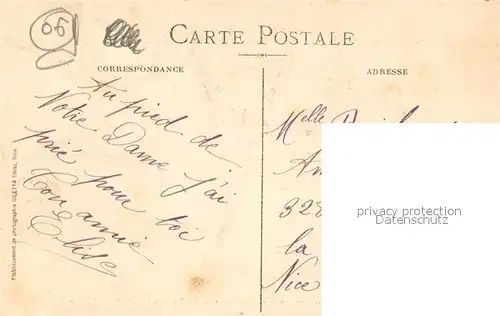 06
CARTE POSTALE
CORRESPONDANCE
ADRESSE
Au pied de
Notre Dame j'ai
prié pour toi
Ton amie
Elise
Melle
328
la
Nice
Etablissement de photographie GILETTA frères, Nice
privacy protection
Datenschutz